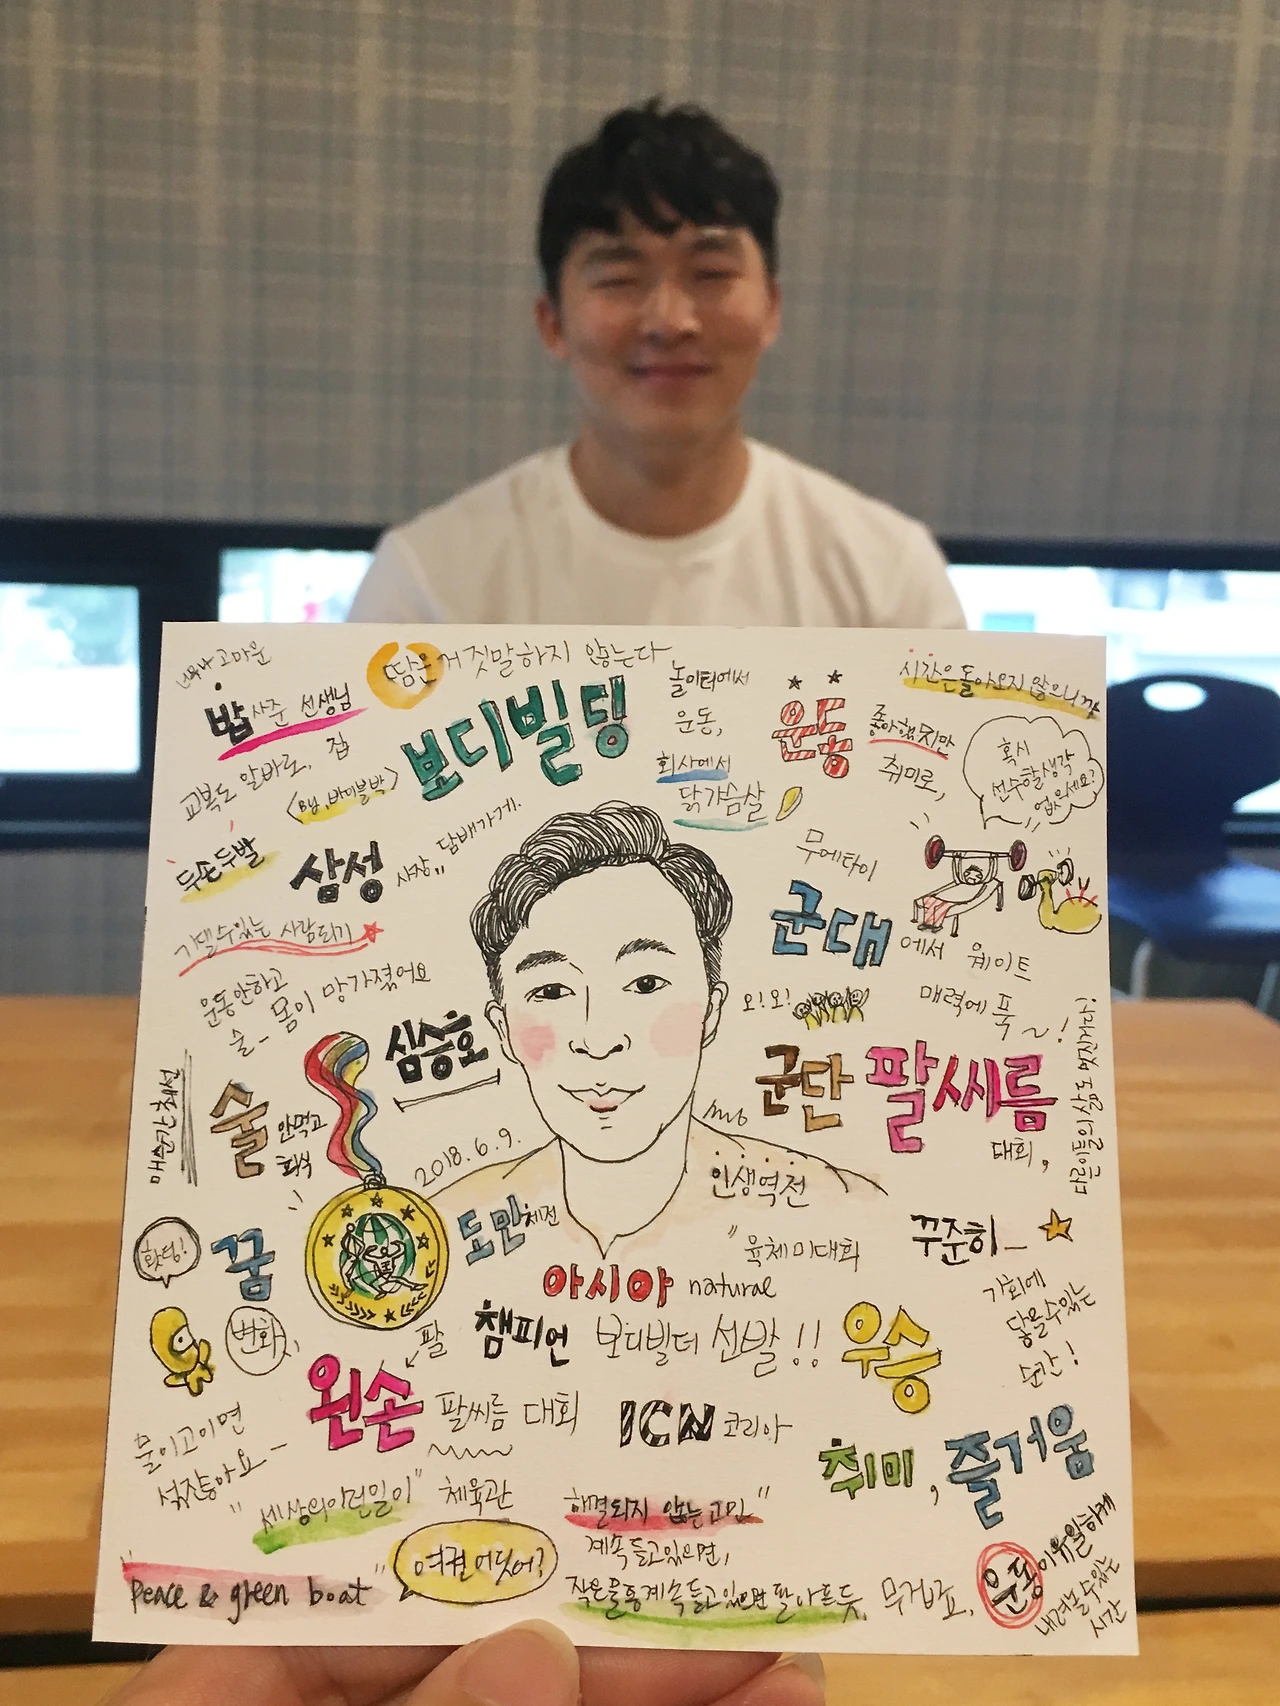 너무나 고마운
밥 사준 선생님
교복도 알바로, 집
땀은 거짓말하지 않는다
보디빌딩
<By. 바이블박>
놀이터에서
운동,
회사에서
닭가슴살
운동
좋아했지만
취미로,
시간은 돌아오지 않으니까
혹시
선수할 생각
없으세요?
두손두발
삼성
사장,, 담배가게.
기댈 수 있는 사람 되기
운동 안하고
술- 몸이 망가졌어요
심승호
2018. 6. 9.
무에타이
군대
에서 웨이트
매력에 푹~!
오! 오!
군단 팔씨름
대회,
다른이들의 삶도 멋진거다!
매순간 최선
술
안먹고
회식
꿈
화팅!
변화
도민체전
인생역전
"육체미대회
꾸준히_
기회에
닿을 수 있는
순간!
아시아 natural
챔피언 보디빌더 선발!!
우승
팔
왼손 팔씨름 대회
ICN 코리아
취미, 즐거움
물이 고이면
썩잖아요-
"세상의 이런일이" 체육관
해결되지 않는 고민"
계속 들고 있으면,
작은 물통 계속 들고 있으면 팔 아프듯, 무겁죠,
"peace & green boat"
여권 어딨어?
운동이 유일하게
내려놓을 수 있는
시간